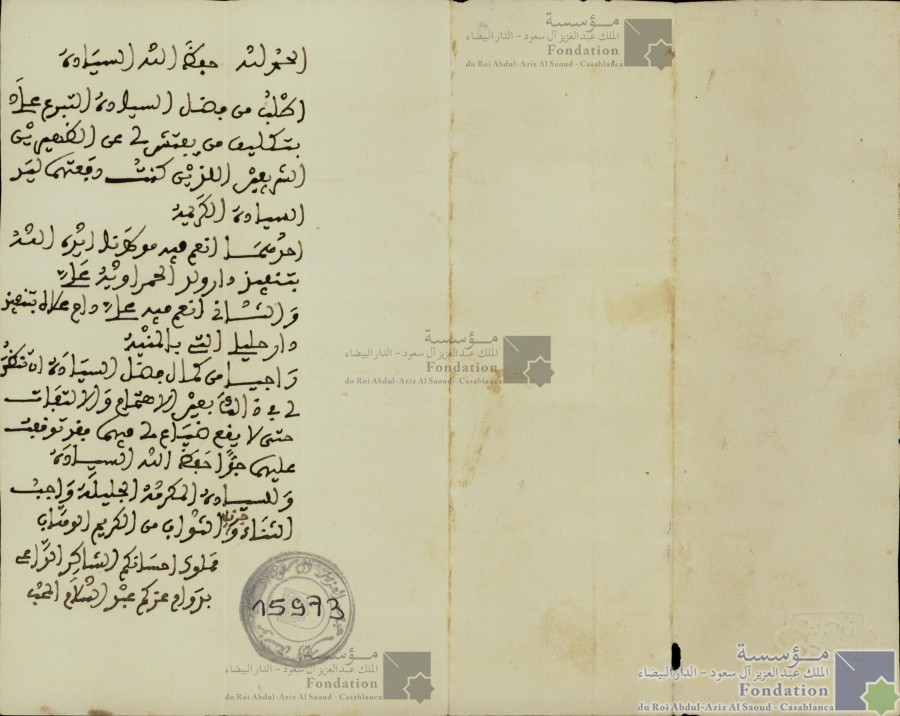 الحمد لله حفظ الله السيادة
اطلب من فضل السيادة التبرع علي
بتكليف من يفتش لي عن الظهيرين
الشريفين اللذين كنت دفعتهما ليد
السيادة الكريمة
احدهما انعم فيه مولانا ايده الله
بتنفيذ دار ولد الحمراوية علي
والثاني انعم فيه علي بتنفيذ
دار التي بالمنية
راجيا من كمال فضل السيادة ان تنظر
لي بعين الاهتمام والالتفات
حتى لا يقع ضياع لي فيهما فقد توقفت
عليهما جدا حفظ الله السيادة
وللسيادة المكرمة الجليلة واجب
الثناء وجزيل الثواب من الكريم الوهاب
مملوك احسانكم الشاكر الداعي
بدوام عزكم عبد السلام المحب
15973
مؤسسة
الملك عبد العزيز آل سعود - الدار البيضاء
Fondation
du Roi Abdul-Aziz Al Saoud - Casablanca
مؤسسة
الملك عبد العزيز آل سعود - الدار البيضاء
Fondation
du Roi Abdul-Aziz Al Saoud - Casablanca
مؤسسة
الملك عبد العزيز آل سعود - الدار البيضاء
Fondation
du Roi Abdul-Aziz Al Saoud - Casablanca
مؤسسة
الملك عبد العزيز آل سعود - الدار البيضاء
Fondation
du Roi Abdul-Aziz Al Saoud - Casablanca